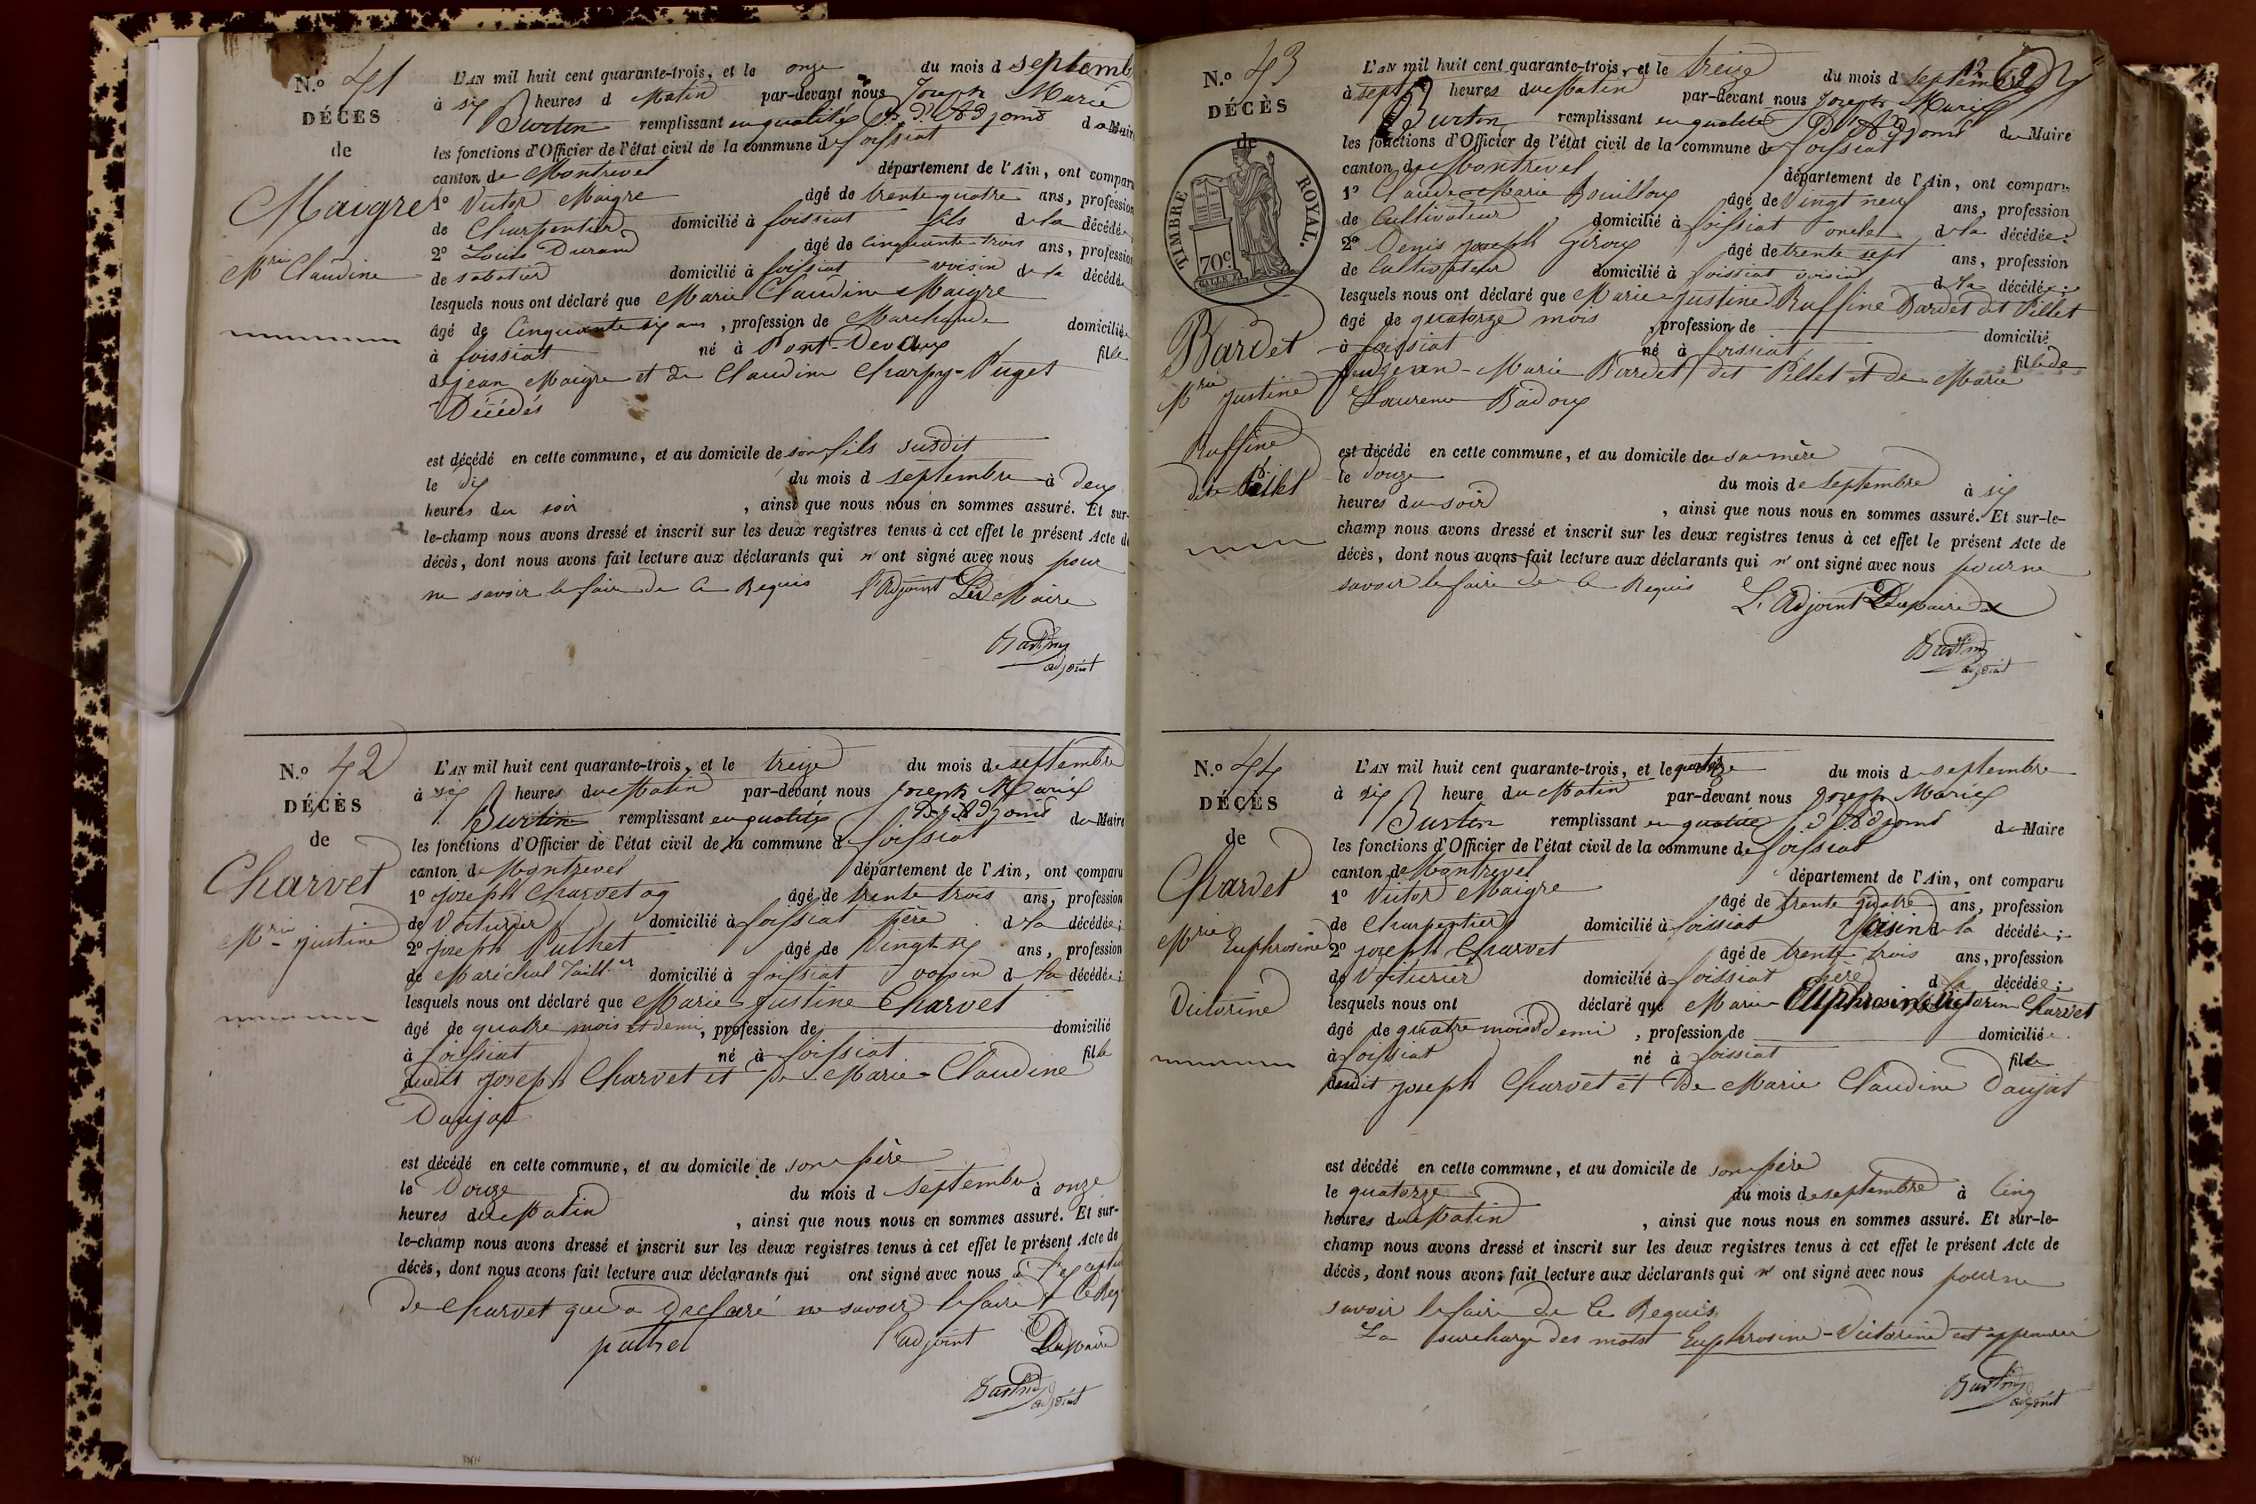 N.º 41
DÉCÈS
de
Maigre
M.rie Claudine
L'AN mil huit cent quarante-trois, et le onze du mois d septemb
à six heures d Matin par-devant nous Joseph Marie
Burtin remplissant en qualité d'Adjoint du Maire
les fonctions d'Officier de l'état civil de la commune de foissiat
canton de Montrevel département de l'Ain, ont comparu
1º Victor Maigre âgé de trente quatre ans, profession
de Charpentier domicilié à foissiat fils de la décédée
2º Louis Durand âgé de cinquante-trois ans, profession
de sabotier domicilié à foissiat voisin de la décédée
lesquels nous ont déclaré que Marie Claudine Maigre
âgé de Cinquante six ans, profession de Marchande domiciliée
à foissiat né à Pont-Devaux fille
de jean Maigre et de Claudine Charpy-Puget
Décédés
est décédé en cette commune, et au domicile de son fils susdit
le dix du mois d septembre à deux
heures du soir, ainsi que nous nous en sommes assuré. Et sur-
le-champ nous avons dressé et inscrit sur les deux registres tenus à cet effet le présent Acte de
décès, dont nous avons fait lecture aux déclarants qui n'ont signé avec nous pour
ne savoir le faire de ce Requis l'Adjoint du Maire
Burtin
adjoint
N.º 42
DÉCÈS
de
Charvet
M.rie justine
L'AN mil huit cent quarante-trois, et le treize du mois de septembre
à six heures du Matin par-devant nous Joseph Marie
Burtin remplissant en qualité d'Adjoint du Maire
les fonctions d'Officier de l'état civil de la commune de foissiat
canton de Montrevel département de l'Ain, ont comparu
1º joseph Charvet âgé de trente trois ans, profession
de Voiturier domicilié à foissiat père de la décédée;
2º joseph Puthet âgé de Vingt six ans, profession
de Maréchal Taill.er domicilié à foissiat voisin de la décédée;
lesquels nous ont déclaré que Marie-justine Charvet
âgé de quatre mois et demi, profession de domicilié
à foissiat né à foissiat fille
dudit joseph Charvet et de Marie-Claudine
Daujat
est décédé en cette commune, et au domicile de son père
le Douze du mois d septembre à onze
heures du Matin, ainsi que nous nous en sommes assuré. Et sur-
le-champ nous avons dressé et inscrit sur les deux registres tenus à cet effet le présent Acte de
décès, dont nous avons fait lecture aux déclarants qui ont signé avec nous à l'exception
de Charvet qui a Déclaré ne savoir le faire de ce Req
puthet l'adjoint Du Maire
Burtin
adjoint
N.º 43
DÉCÈS
de
TIMBRE ROYAL.
70c.
Bardet
M.rie justine
Ruffine
dit Pillet
L'AN mil huit cent quarante-trois, et le treize du mois d septembre
à sept heures du Matin par-devant nous Joseph Marie
Burtin remplissant en qualité D'Adjoint du Maire
les fonctions d'Officier de l'état civil de la commune de foissiat
canton de Montrevel département de l'Ain, ont comparu
1º Claude-Marie Bouilloux âgé de Vingt neuf ans, profession
de Cultivateur domicilié à foissiat oncle de la décédée;
2º Denis joseph Giroux âgé de trente sept ans, profession
de Cultivateur domicilié à foissiat voisin de la décédée;
lesquels nous ont déclaré que Marie-justine Ruffine Bardet dit Pillet
âgé de quatorze mois, profession de domicilié
à foissiat né à foissiat fille de
feu jean-Marie Bardet dit Pillet et de Marie
Laurence Badoux
est décédé en cette commune, et au domicile de sa mère
le douze du mois de septembre à six
heures du soir, ainsi que nous nous en sommes assuré. Et sur-le-
champ nous avons dressé et inscrit sur les deux registres tenus à cet effet le présent Acte de
décès, dont nous avons fait lecture aux déclarants qui n'ont signé avec nous pour ne
savoir le faire de ce Requis L'Adjoint Du Maire
Burtin
adjoint
N.º 44
DÉCÈS
de
Charvet
M.rie Euphrosine
Victorine
L'AN mil huit cent quarante-trois, et le quatorze du mois de septembre
à six heure du Matin par-devant nous Joseph Marie
Burtin remplissant en qualité d'Adjoint du Maire
les fonctions d'Officier de l'état civil de la commune de foissiat
canton de Montrevel département de l'Ain, ont comparu
1º Victor Maigre âgé de trente quatre ans, profession
de Charpentier domicilié à foissiat Voisin de la décédée;
2º joseph Charvet âgé de trente trois ans, profession
de Voiturier domicilié à foissiat père de la décédée;
lesquels nous ont déclaré que Marie Euphrosine Victorine Charvet
âgé de quatre mois et demi, profession de domiciliée
à foissiat né à foissiat fille
dudit joseph Charvet et De Marie Claudine Daujat
est décédé en cette commune, et au domicile de son père
le quatorze du mois de septembre à cinq
heures du Matin, ainsi que nous nous en sommes assuré. Et sur-le-
champ nous avons dressé et inscrit sur les deux registres tenus à cet effet le présent Acte de
décès, dont nous avons fait lecture aux déclarants qui n'ont signé avec nous pour ne
savoir le faire de ce Requis
La surcharge des mots Euphrosine-Victorine est approuvée
Burtin
adjoint